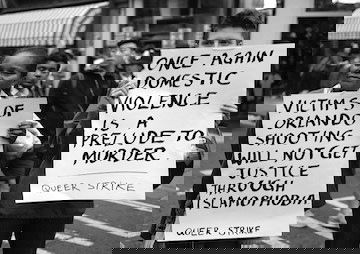 VICTIMS OF
ORLANDO
SHOOTING
WILL NOT GET
JUSTICE
THROUGH
ISLAMOPHOBIA
QUEER STRIKE
ONCE AGAIN
DOMESTIC
VIOLENCE
IS A
PRELUDE TO
MURDER.
QUEER STRIKE